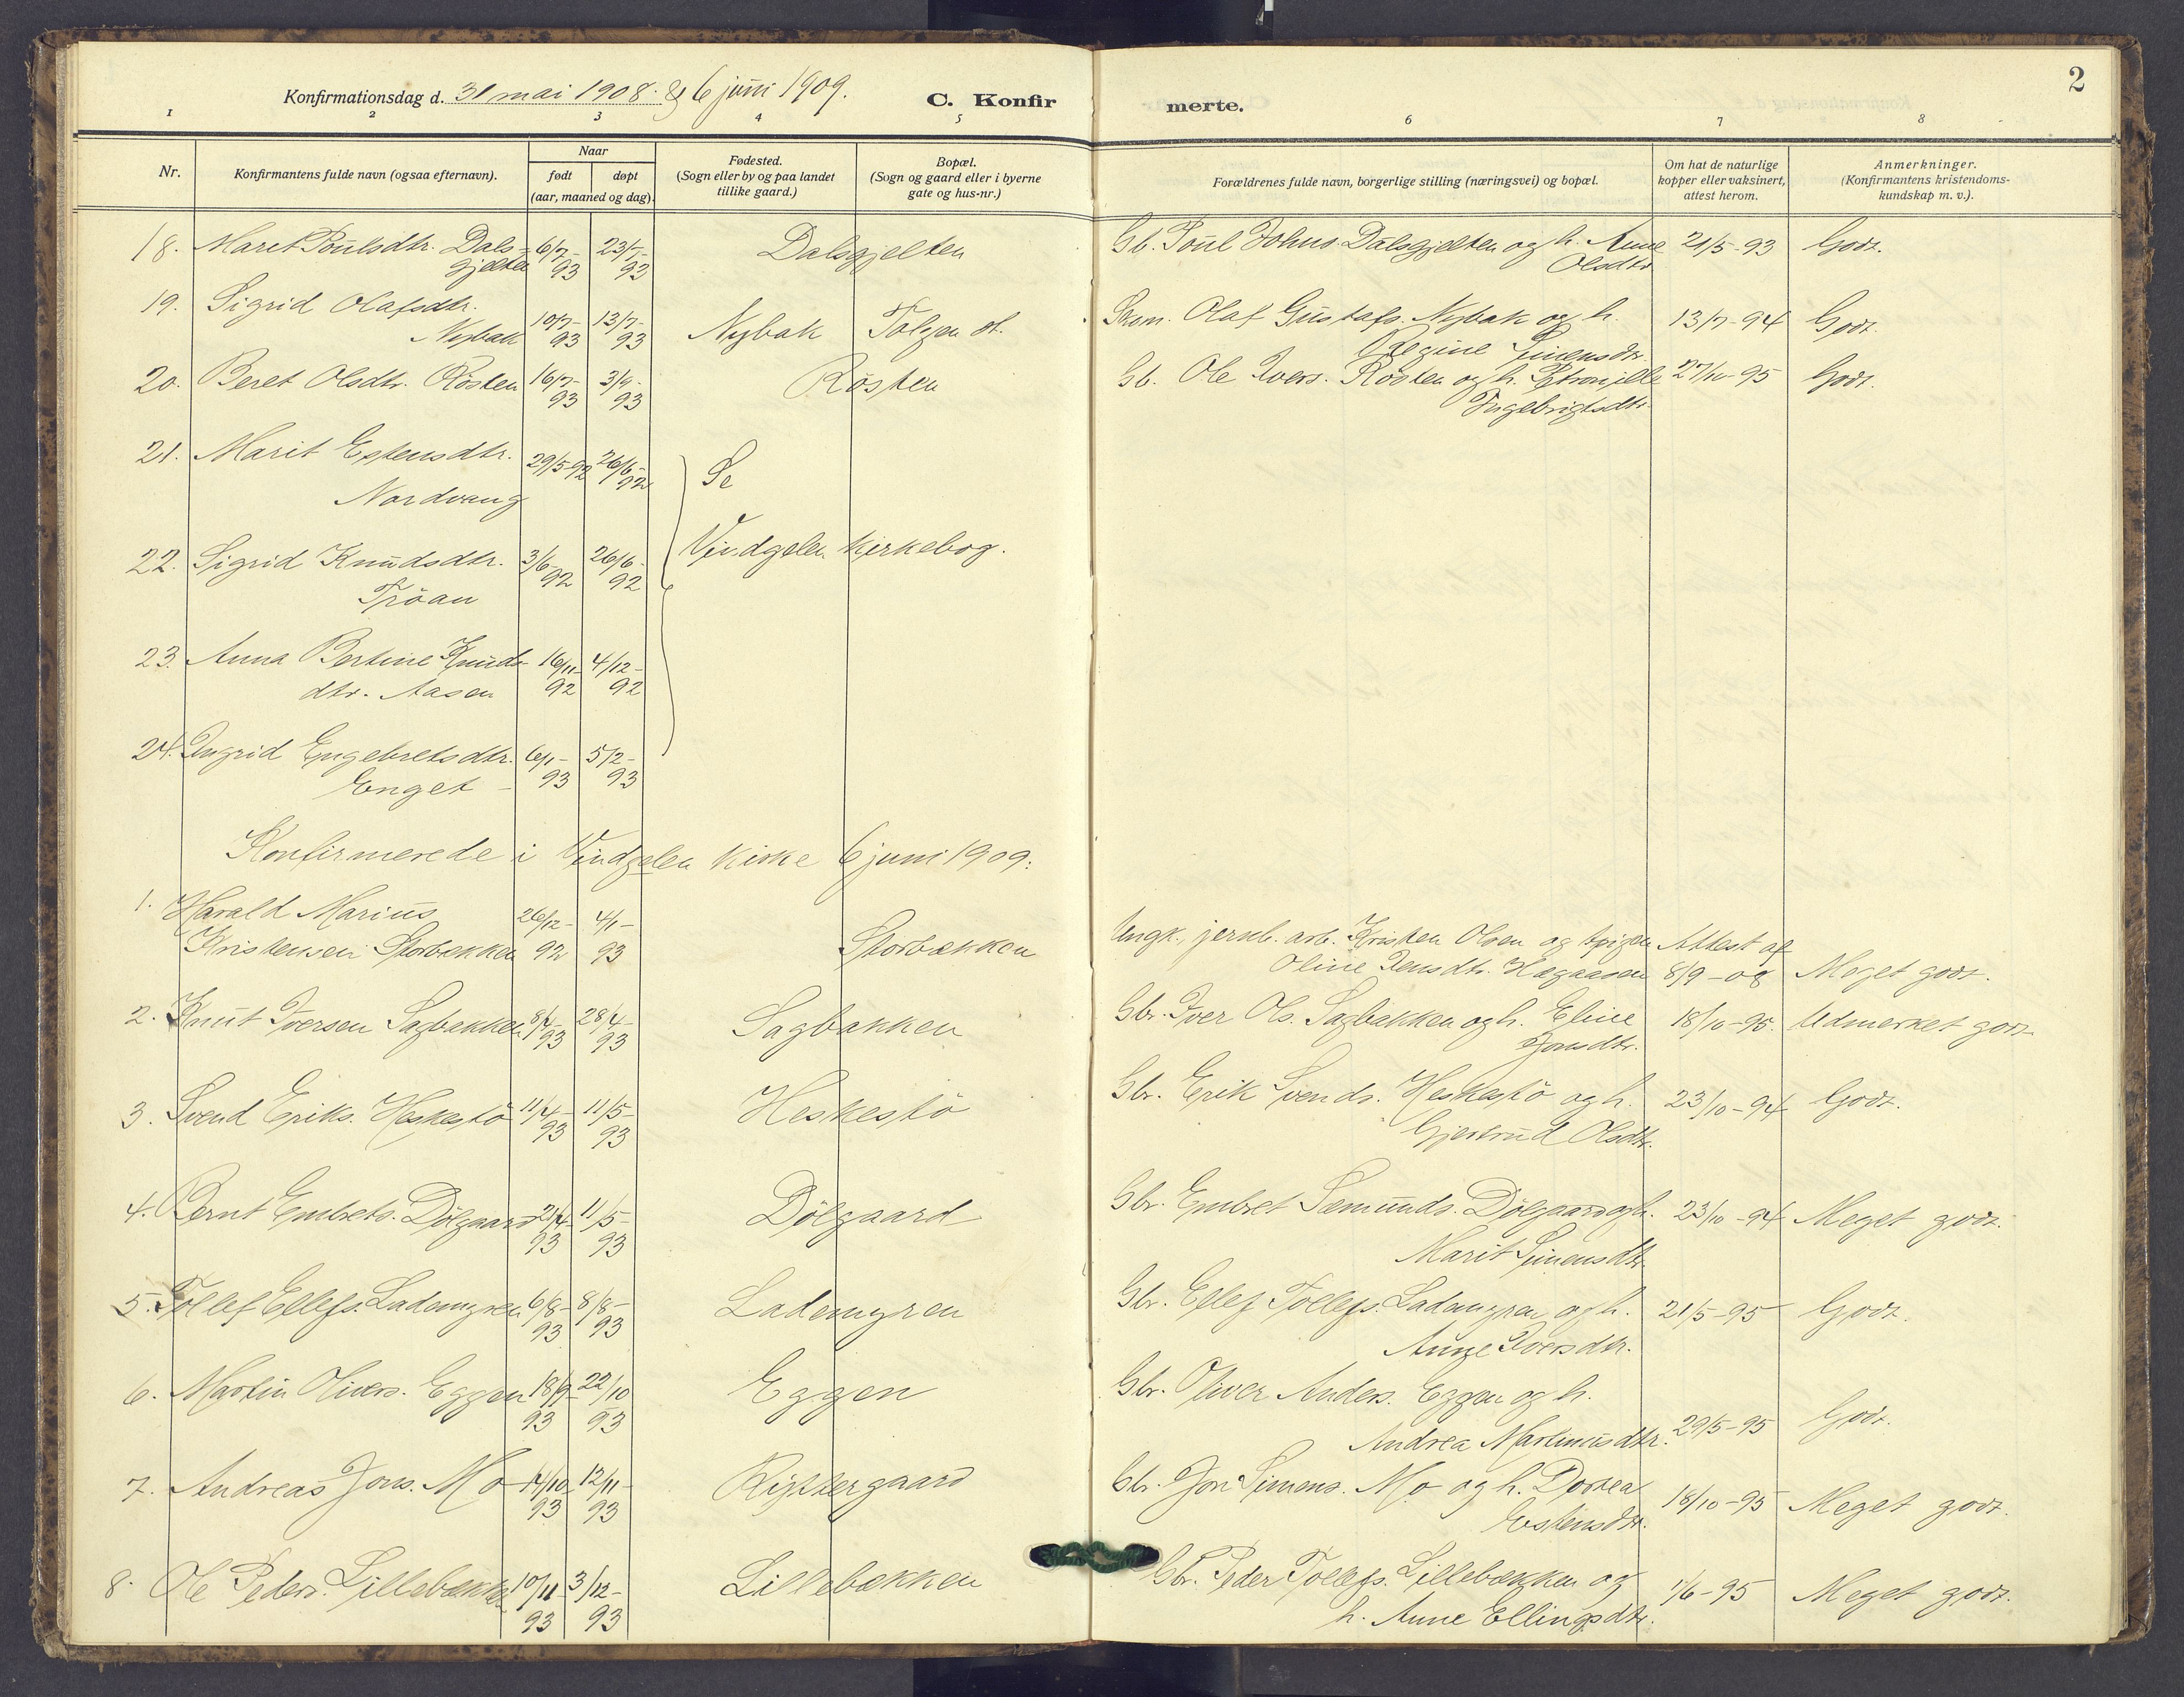 Konfirmationsdag d. 31 mai 1908. & 6 juni 1909.
C. Konfirmerte.
2
1 2 3 4 5 6 7 8
Nr.
Konfirmantens fulde navn (ogsaa efternavn).
Naar
født døpt
(aar, maaned og dag).
Fødested.
(Sogn eller by og paa landet
tillike gaard.)
Bopæl.
(Sogn og gaard eller i byerne
gate og hus-nr.)
Forældrenes fulde navn, borgerlige stilling (næringsvei) og bopæl.
Om hat de naturlige
kopper eller vaksinert,
attest herom.
Anmerkninger.
(Konfirmantens kristendoms-
kundskap m. v.).
18. Maret Poulsdtr. Dals- 6/7- 23/7- Dalsgjelten Gb. Poul Johns. Dalsgjelten og h. Anne 21/5-93 Godt.
gjelten 93 93 Olsdtr
19. Sigrid Olafsdtr. 10/7- 13/7- Nybak Tolgen st. Olaf Gustafs. Nybak og h. 13/7-94 Godt.
Nybak 93 93 Regine Simensdtr.
20. Beret Olsdtr. Røsten 16/7- 3/9- Røsten Gb. Ole Ivers. Røsten og h. Petronille 27/10-95 Godt.
93 93 Ingebrigtsdtr.
21. Marit Estensdtr. 29/5-92 26/6- Se
Nordvang 92
22. Sigrid Knudsdtr. 3/6- 26/6- Vindgelen Kirkebog.
Trøan 92 92
23. Anna Bertine Knuds- 16/11- 4/12-
dtr. Aasen 92 92
24. Ingrid Engebretsdtr. 6/1- 5/2-
Enget - 93 93
Konfirmerede i Vindgelen Kirke 6 juni 1909:
1. Harald Marius 26/12- 4/1- Ungk., jernb. arb. Kristen Olsen og pigen Attest af
Kristensen Storbækken 92 93 Storbækken Oline Jensdtr. Hægaasen 8/9-08 Meget godt.
2. Knut Iversen Sagbakken 8/4- 28/4- Sagbakken Gbr. Iver Ols. Sagbakken og h. Eline 18/10-95. Udmerket godt
93 93 Jonsdtr.
3. Svend Eriks. Heskestø 11/4- 11/5- Heskestø Gbr. Erik Svends. Heskestø og h. 23/10-94 Godt.
93 93 Gjertrud Olsdtr.
4. Bernt Embrets. Dølgaard 21/4- 11/5- Dølgaard Gbr. Embret Sæmunds. Dølgaard og h. 23/10-94 Meget godt.
93 93 Marit Simensdtr
5. Tollef Ellefs. Lademyren 6/8- 8/8- Lademyren Gbr. Ellef Tollefs. Lademyren og h. 21/5-95 Godt.
93 93 Anne Iversdtr.
6. Martin Olivers. Eggen 18/9- 22/10 Eggen Gbr. Oliver Anders. Eggen og h.
93 93 Andrea Martinusdtr. 29/5-95 Godt.
7. Andreas Jons. Mo 14/10- 12/11- Gbr. Jon Simens. Mo og h. Dortea 18/10-95 Meget godt.
93 93 Estensdtr.
8. Ole Peders. Lillebækken 10/11 3/12- Lillebækken Gbr. Peder Tollefs. Lillebækken og 1/6-95 Meget godt.
93 93 h. Anne Ellingsdtr.